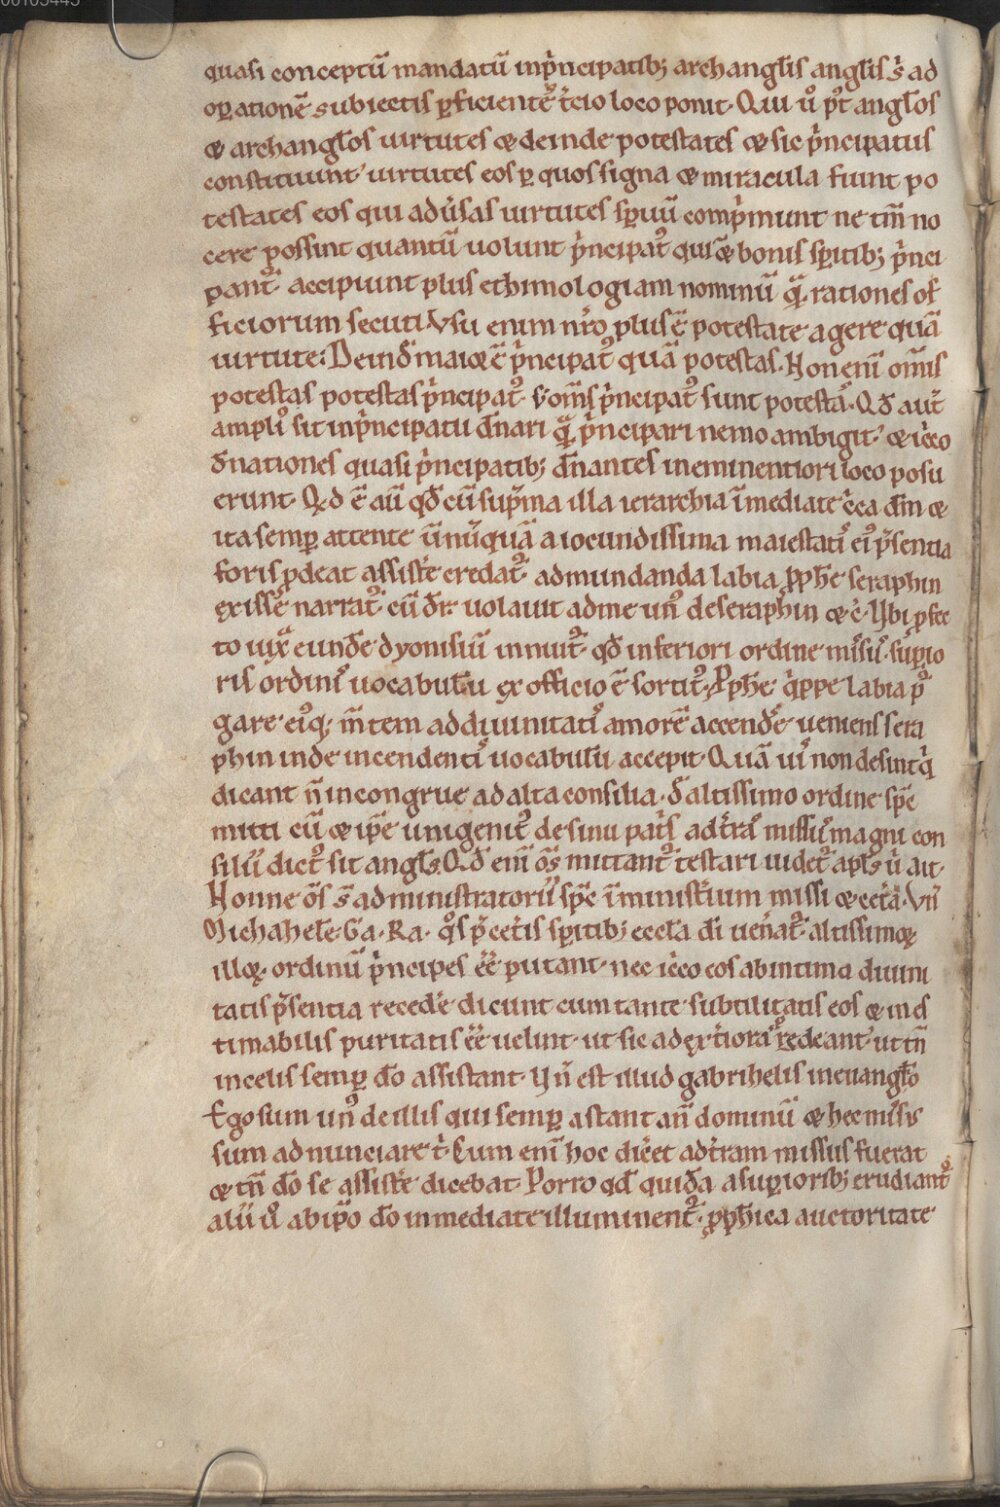 quasi conceptū mandatū inpͥncipatib; archangl̄is angl̄is s̄ ad
oꝑationē subiectis ꝑficientē t̄cio loco ponit. Qui ů p̊t angl̄os
& archangl̄os uirtutes & deinde potestates & sic pͥncipatus
constituunt uirtutes eos ꝑ quos signa & miracula fiunt po
testates eos qui adūsas uirtutes spirituū compͥmunt ne tm̄ no
cere possint quantū uolunt pͥncipat᷒ qui & bonis spiritib; pͥnci
pant᷒. accipiunt plus ethimologiam nominū q̄ rationes of
ficiorum secuti. Vsu enim nr̄o plus ē potestate agere quā
uirtute. Deind̄ maior ē pͥncipat᷒ quā potestas. Non enī om̄is
potestas potestas pͥncipat᷒. s; om̄s pͥncipat᷒ sunt potestā. Qd̄ aut̄
ampli᷒ sit inpͥncipatu dn̄ari q̄ pͥncipari nemo ambigit. & icͥco
dn̄ationes quasi pͥncipatib; dn̄antes ineminentiori loco posu
erunt. Qd ē aū qd̄ cū sup̄ma illa ierarchia īmediate cͥca dm̄ &
ita semꝑ attente ūnūquā a iocundissima maiestatͥ ei᷒ p̄sentia
foris ꝓdeat assistē credat᷒. admundanda labia ꝓph̄e seraphin
exissē narrat᷒. cū dr̄ uolauit adme un᷒ deseraphin & c̄. Vbi ꝓfec
to iux̄ eund̄e dyonisiū innuit᷒. qd̄ inferiori ordine mīsū. suꝑio
ris ordinͥ uocabulū ex officio ē sortit᷒. Ꝓph̄e qͥppe labia p᷒
gare ei᷒q; m̄tem addiuinitatͥ amorē accend̄e ueniens sera
phin inde incendentͥ uocabulū accepit. Quā uͥ non desint qͥ
dicant n̄ incongrue ad alta consilia. d̄ altissimo ordine sp̄c
mitti cū & ip̄e unigenit᷒ desinu patͥs adt̄rā missͥ magni con
silii dict᷒ sit angl̄s. Qd̄ enī ōs mittant᷒ testari uidet᷒ apl̄s ů ait.
Nonne ōs s̄ administratorii sp̄c īministͥium missi & cet̄a. Vn̄
Michahele. Ga. Ra. q᷒s p̄ cet̄is spiritib; eccl̄a dī uen̄at᷒. altissimoꝝ
illoꝝ. ordinū pͥncipes eē putant. nec icͥco eos abintima diuini
tatis p̄sentia reced̄e dicunt cum tante subtilitatis eos & ines
timabilis puritatis eē uelint. ut sic ad ext̄iora redeant. ut tn̄
incelis semꝑ do assistant. Vn̄ est illud gabrihelis ineuangl̄o
Ego sum un᷒ deillis qui semꝑ astant an̄ dominū & hec missͥs
sum adnunciare t̄. Cum enī hoc dicͥet adt̄ram missus fuerat
& tn̄ do se assistē dicebat. Porro qd̄ quid̄a asuꝑiorib; erudiant᷒
alii ů abip̄o do inmediate illuminent᷒. ꝓph̄ica auctoritate